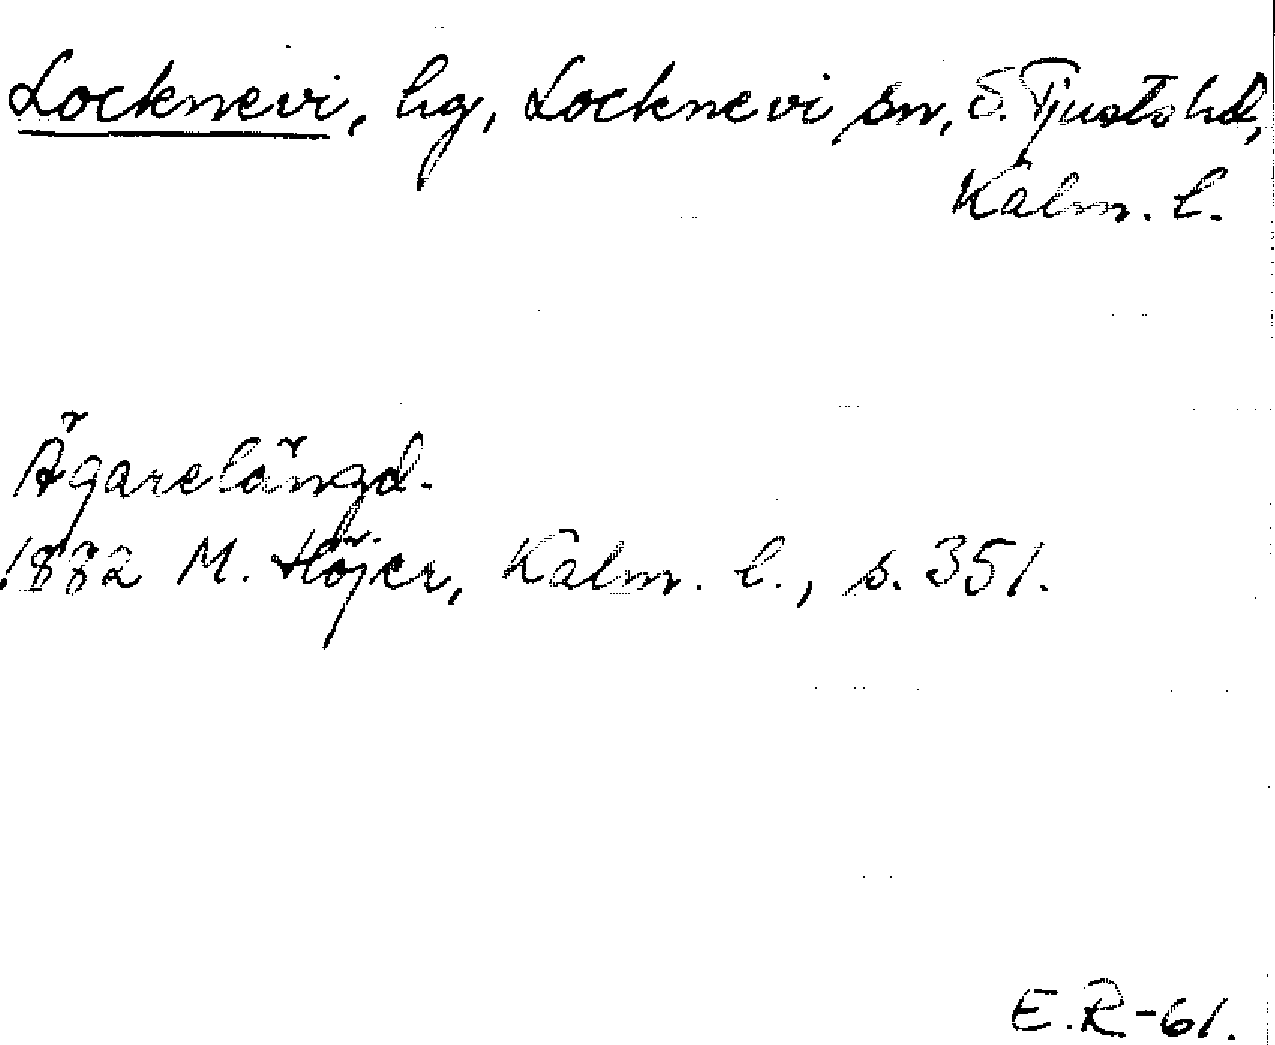 Locknevi, hg, Locknevi sn, S. Tjusts hd,
Kalm. l.
Ägarelängd.
1882 M. Höjer, Kalm. l., s. 351.
E.R-61.